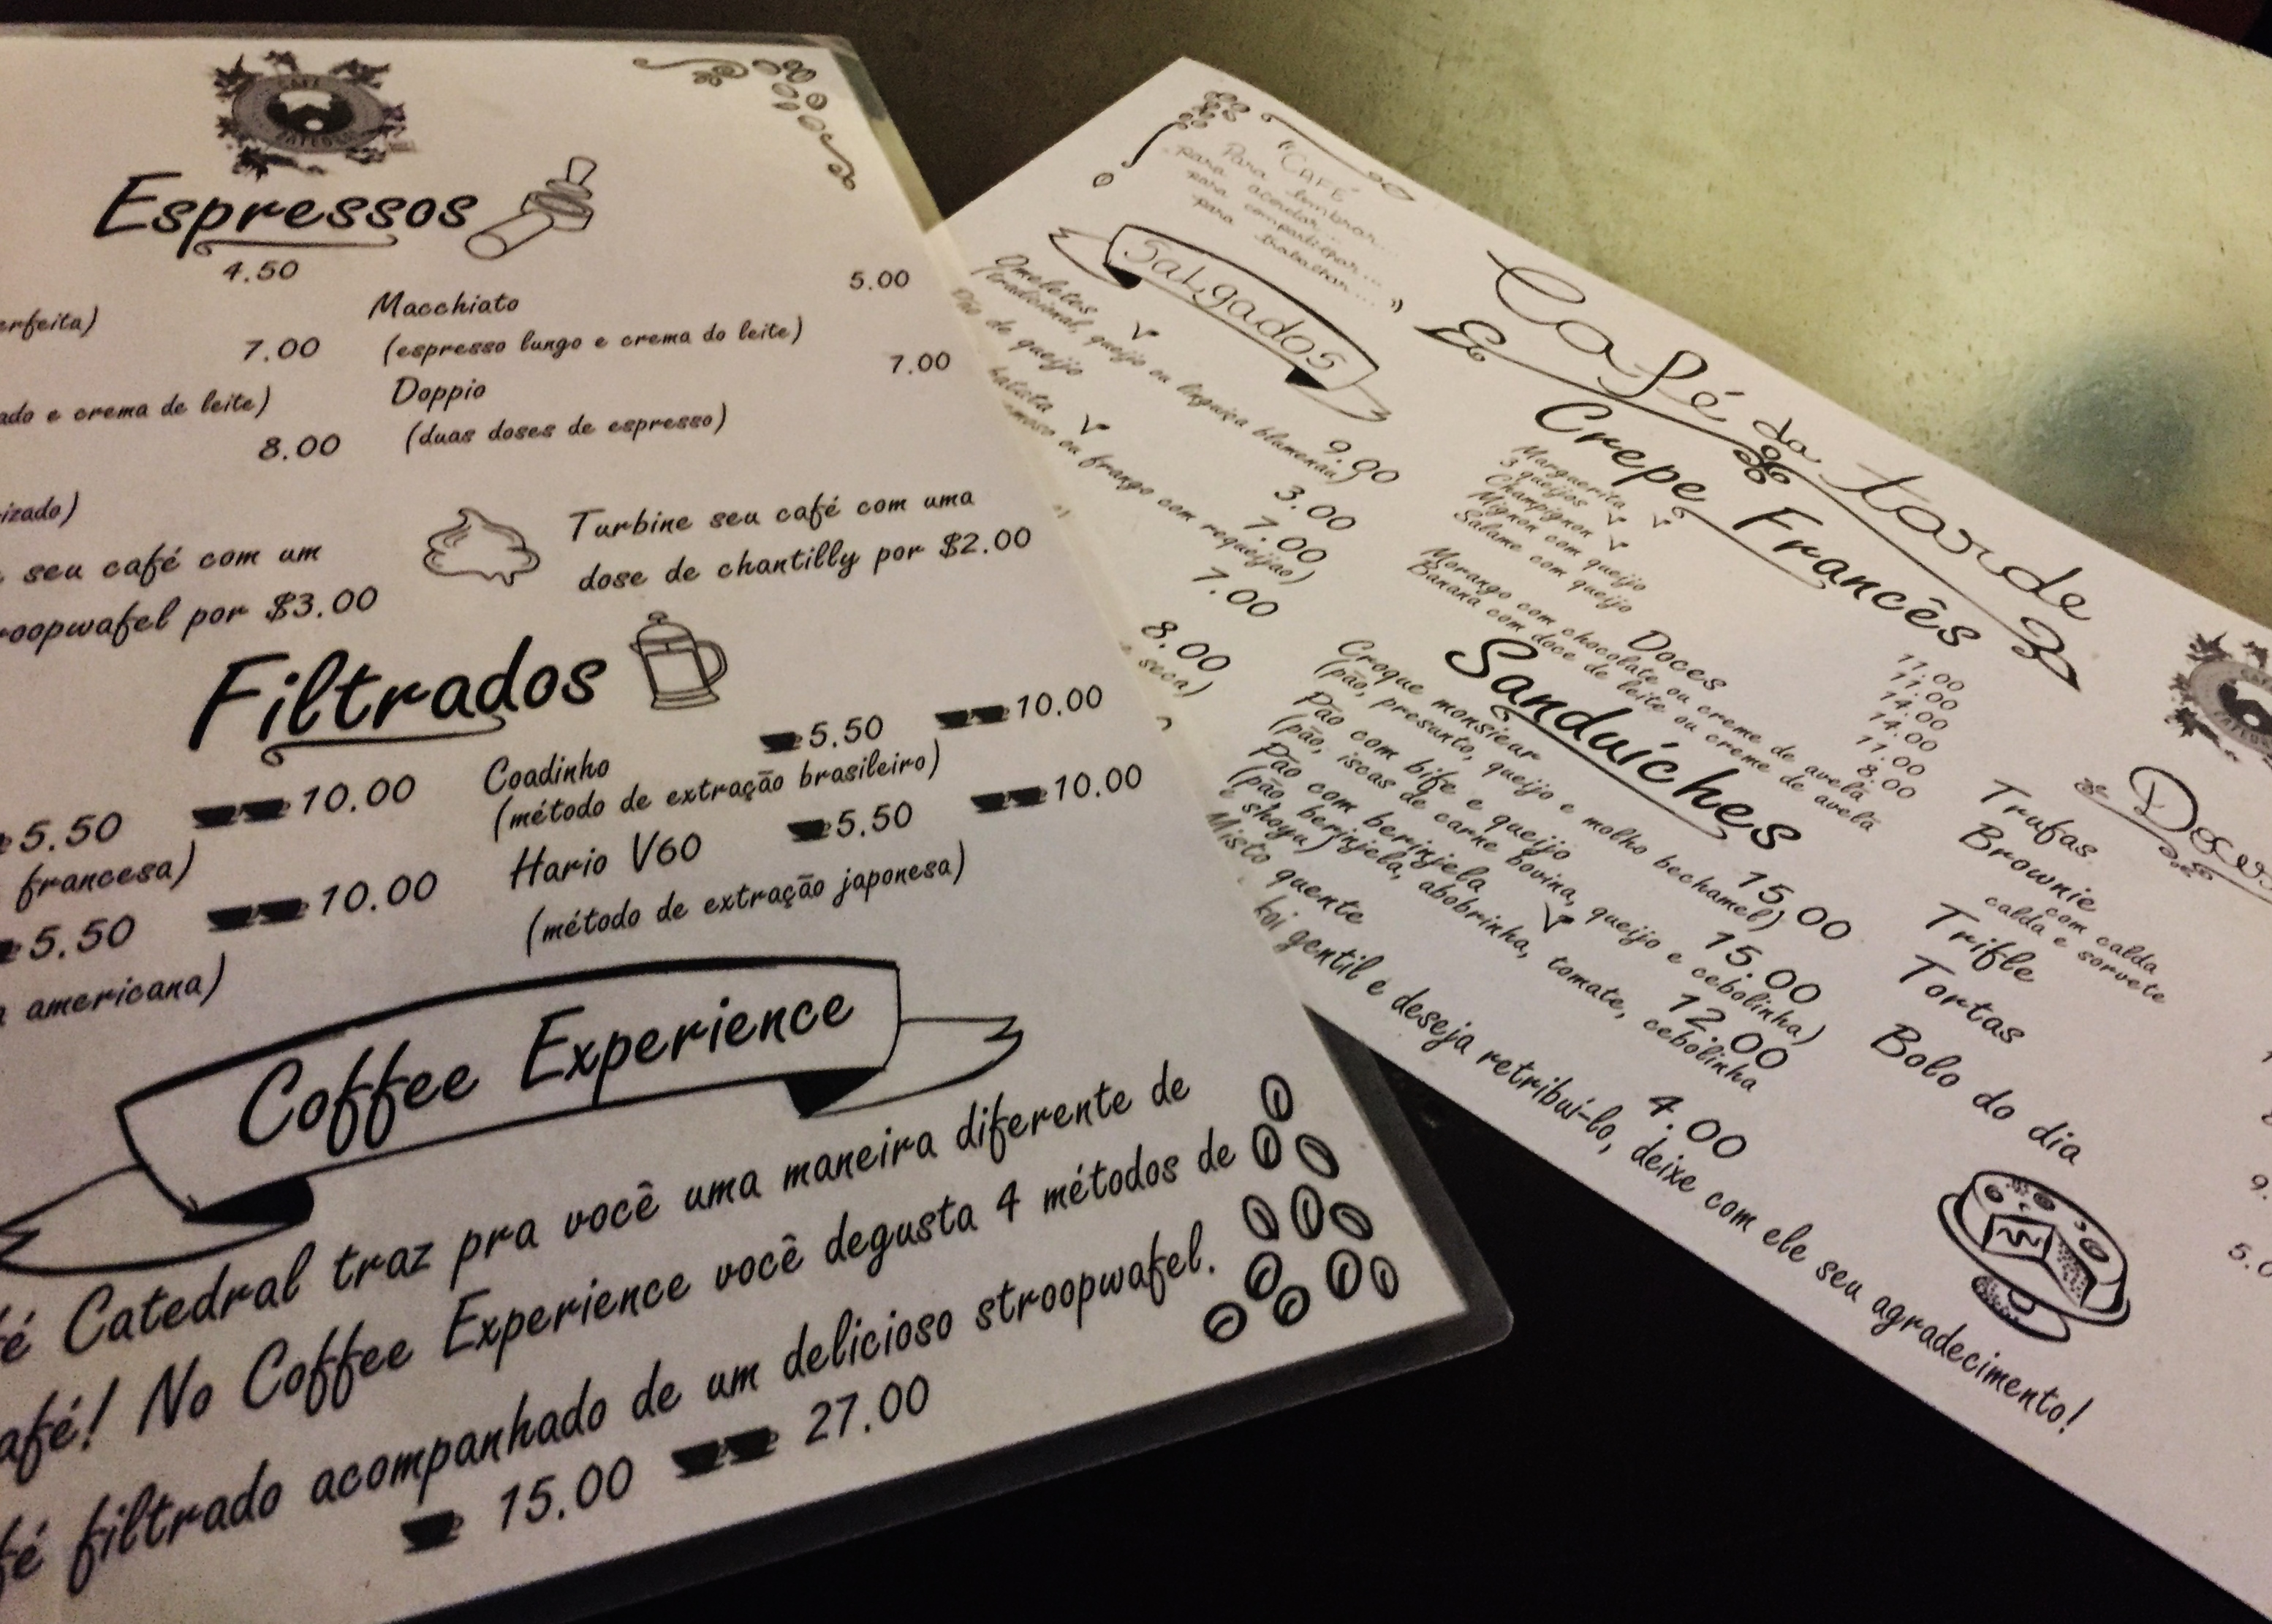 Espressos
4.50
erfeita)
7.00
ado e crema de leite)
8.00
izado)
seu café com um
roopwafel por $3.00
Macchiato
5.00
(espresso lungo e crema do leite)
Doppio
7.00
(duas doses de espresso)
Turbine seu café com uma
dose de chantilly por $2.00
Filtrados
5.50 10.00
francesa)
5.50 10.00
americana)
Coadinho 5.50 10.00
(método de extração brasileiro)
Hario V60 5.50 10.00
(método de extração japonesa)
Coffee Experience
é Catedral traz pra você uma maneira diferente de
afé! No Coffee Experience você degusta 4 métodos de
fé filtrado acompanhado de um delicioso stroopwafel.
15.00 27.00
"CAFÉ
Para lembrar...
para acordar...
para compartilhar...
para trabalhar... "
Salgados
Omeletes 9.00
(tradicional, queijo ou linguiça blumenau)
Pão de queijo 3.00
batata 7.00
ou frango com requeijão)
7.00
8.00
seca)
Café da tarde
Crepe Francês
Marguerita 11.00
3 queijos 11.00
Champignon 14.00
Mignon com queijo 14.00
Salame com queijo 11.00
Doces 8.00
Morango com chocolate ou creme de avelã
Banana com doce de leite ou creme de avelã
Sanduíches
Croque monsiear 15.00
(pão, presunto, queijo e molho bechamel)
Pão com bife e queijo 15.00
(pão, iscas de carne bovina, queijo e cebolinha)
Pão com berinjela 12.00
(pão, berinjela, abobrinha, tomate, cebolinha
e shoyu)
Misto quente 4.00
foi gentil e deseja retribuí-lo, deixe com ele seu agradecimento!
Trufas
Brownie
com calda
calda e sorvete
Trifle
Tortas
Bolo do dia
9.
5.0